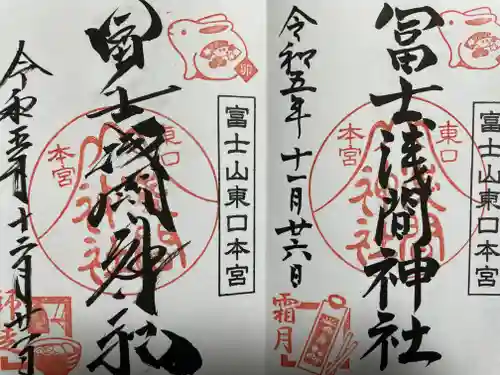 富士山東口本宮
冨士浅間神社
令和五年十一月廿六日
東口
本宮
浅間
神社
霜月
卯
富士山東口本宮
冨士浅間神社
令和五年十二月廿六日
東口
本宮
浅間
神社
師走